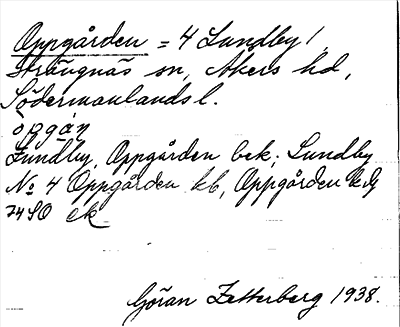 Oppgården = 4 Lundby,
Strängnäs sn, Åkers hd,
Södermanlands l.
öpgán
Lundby, Oppgården bek; Lundby
No 4 Oppgården kb, Oppgården
74 SO ek
Göran Zetterberg 1938.